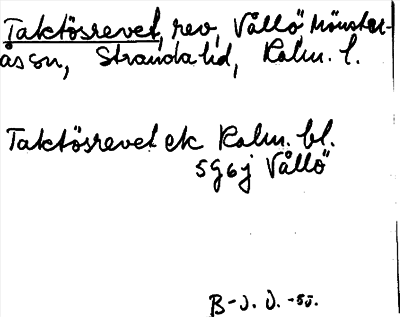 Taktösrevet, rev, Vållö, Mönster-
åson, Stranda hd, Kalm. l.
Taktösrevet ek Kalm. bl.
5g6j Vållö
B-J. D. -55.